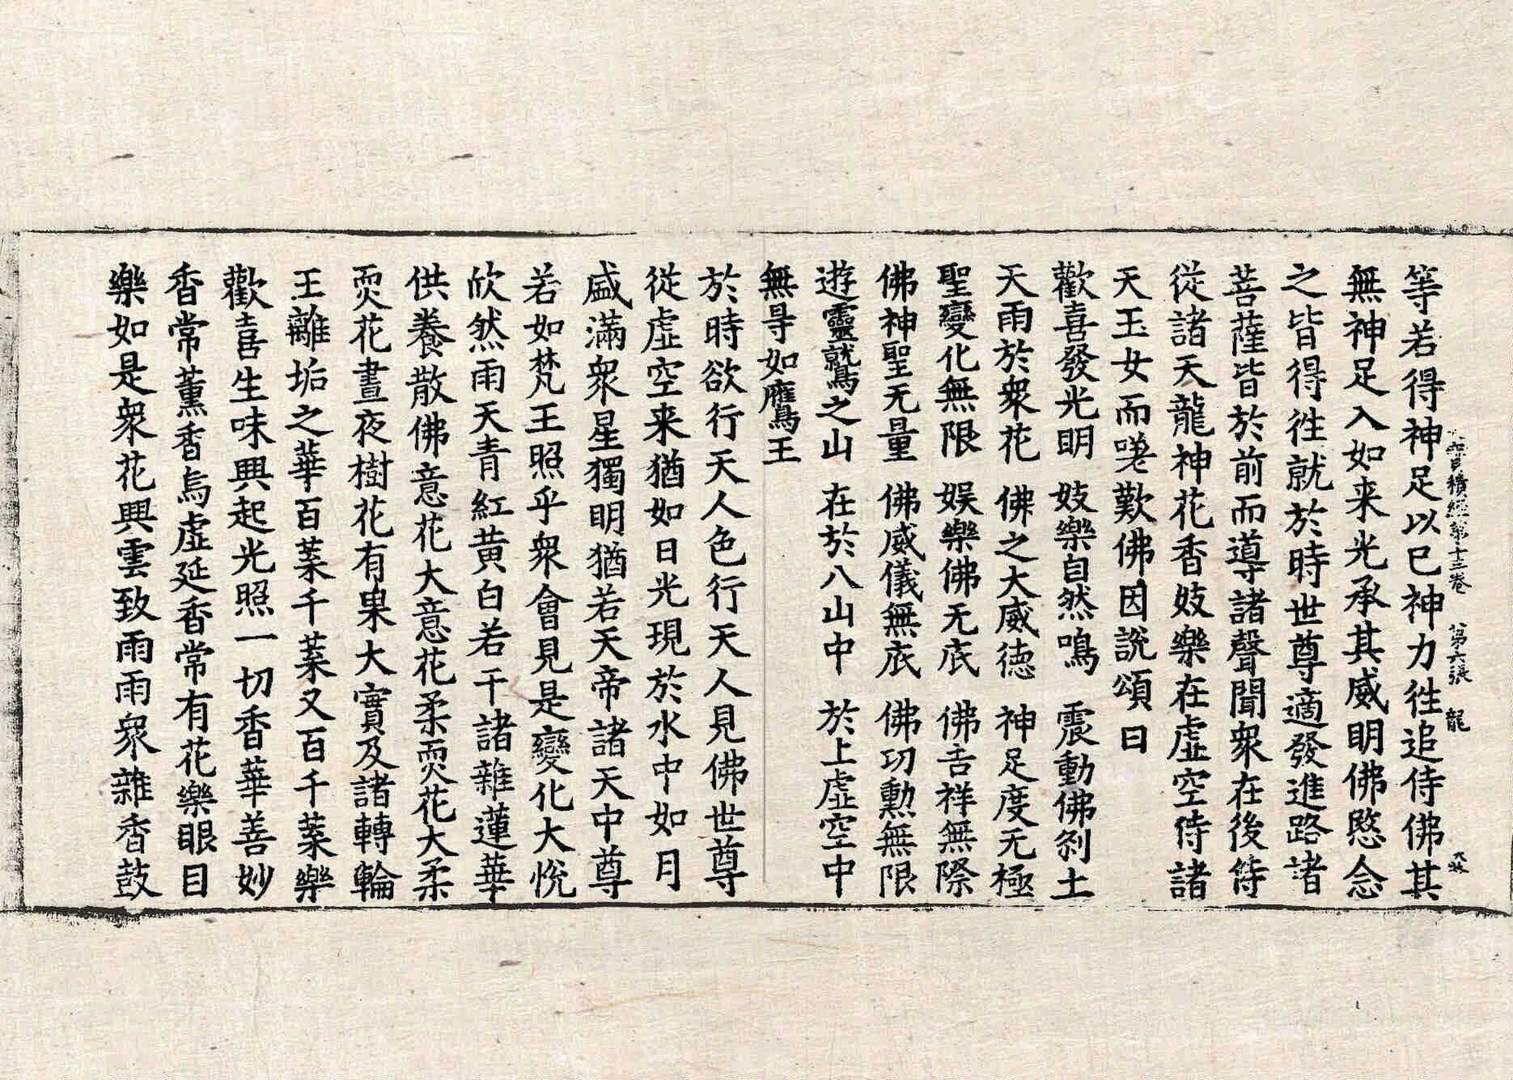 寶積經第十三卷 第六張 龍
等若得神足以已神力徃追侍佛其
無神足入如来光承其威明佛愍念
之皆得徃就於時世尊適發進路諸
菩薩皆於前而導諸聲聞衆在後侍
從諸天龍神花香妓樂在虚空侍諸
天玉女而嗟歎佛因說頌曰
歡喜發光明 妓樂自然鳴 震動佛剎土
天雨於衆花 佛之大威德 神足度无極
聖變化無限 娯樂佛无底 佛吉祥無際
佛神聖无量 佛威儀無底 佛功勲無限
遊靈鷲之山 在於八山中 於上虚空中
無㝵如鷹王
於時欲行天人色行天人見佛世尊
從虚空来猶如日光現於水中如月
盛滿衆星獨明猶若天帝諸天中尊
若如梵王照乎衆會見是變化大悅
欣然雨天青紅黄白若干諸雜蓮華
供養散佛意花大意花柔耎花大柔
耎花晝夜樹花有果大實及諸轉輪
王離垢之華百葉千葉又百千葉樂
歡喜生味興起光照一切香華善妙
香常薰香烏虚延香常有花樂眼目
樂如是衆花興雲致雨雨衆雜香鼓